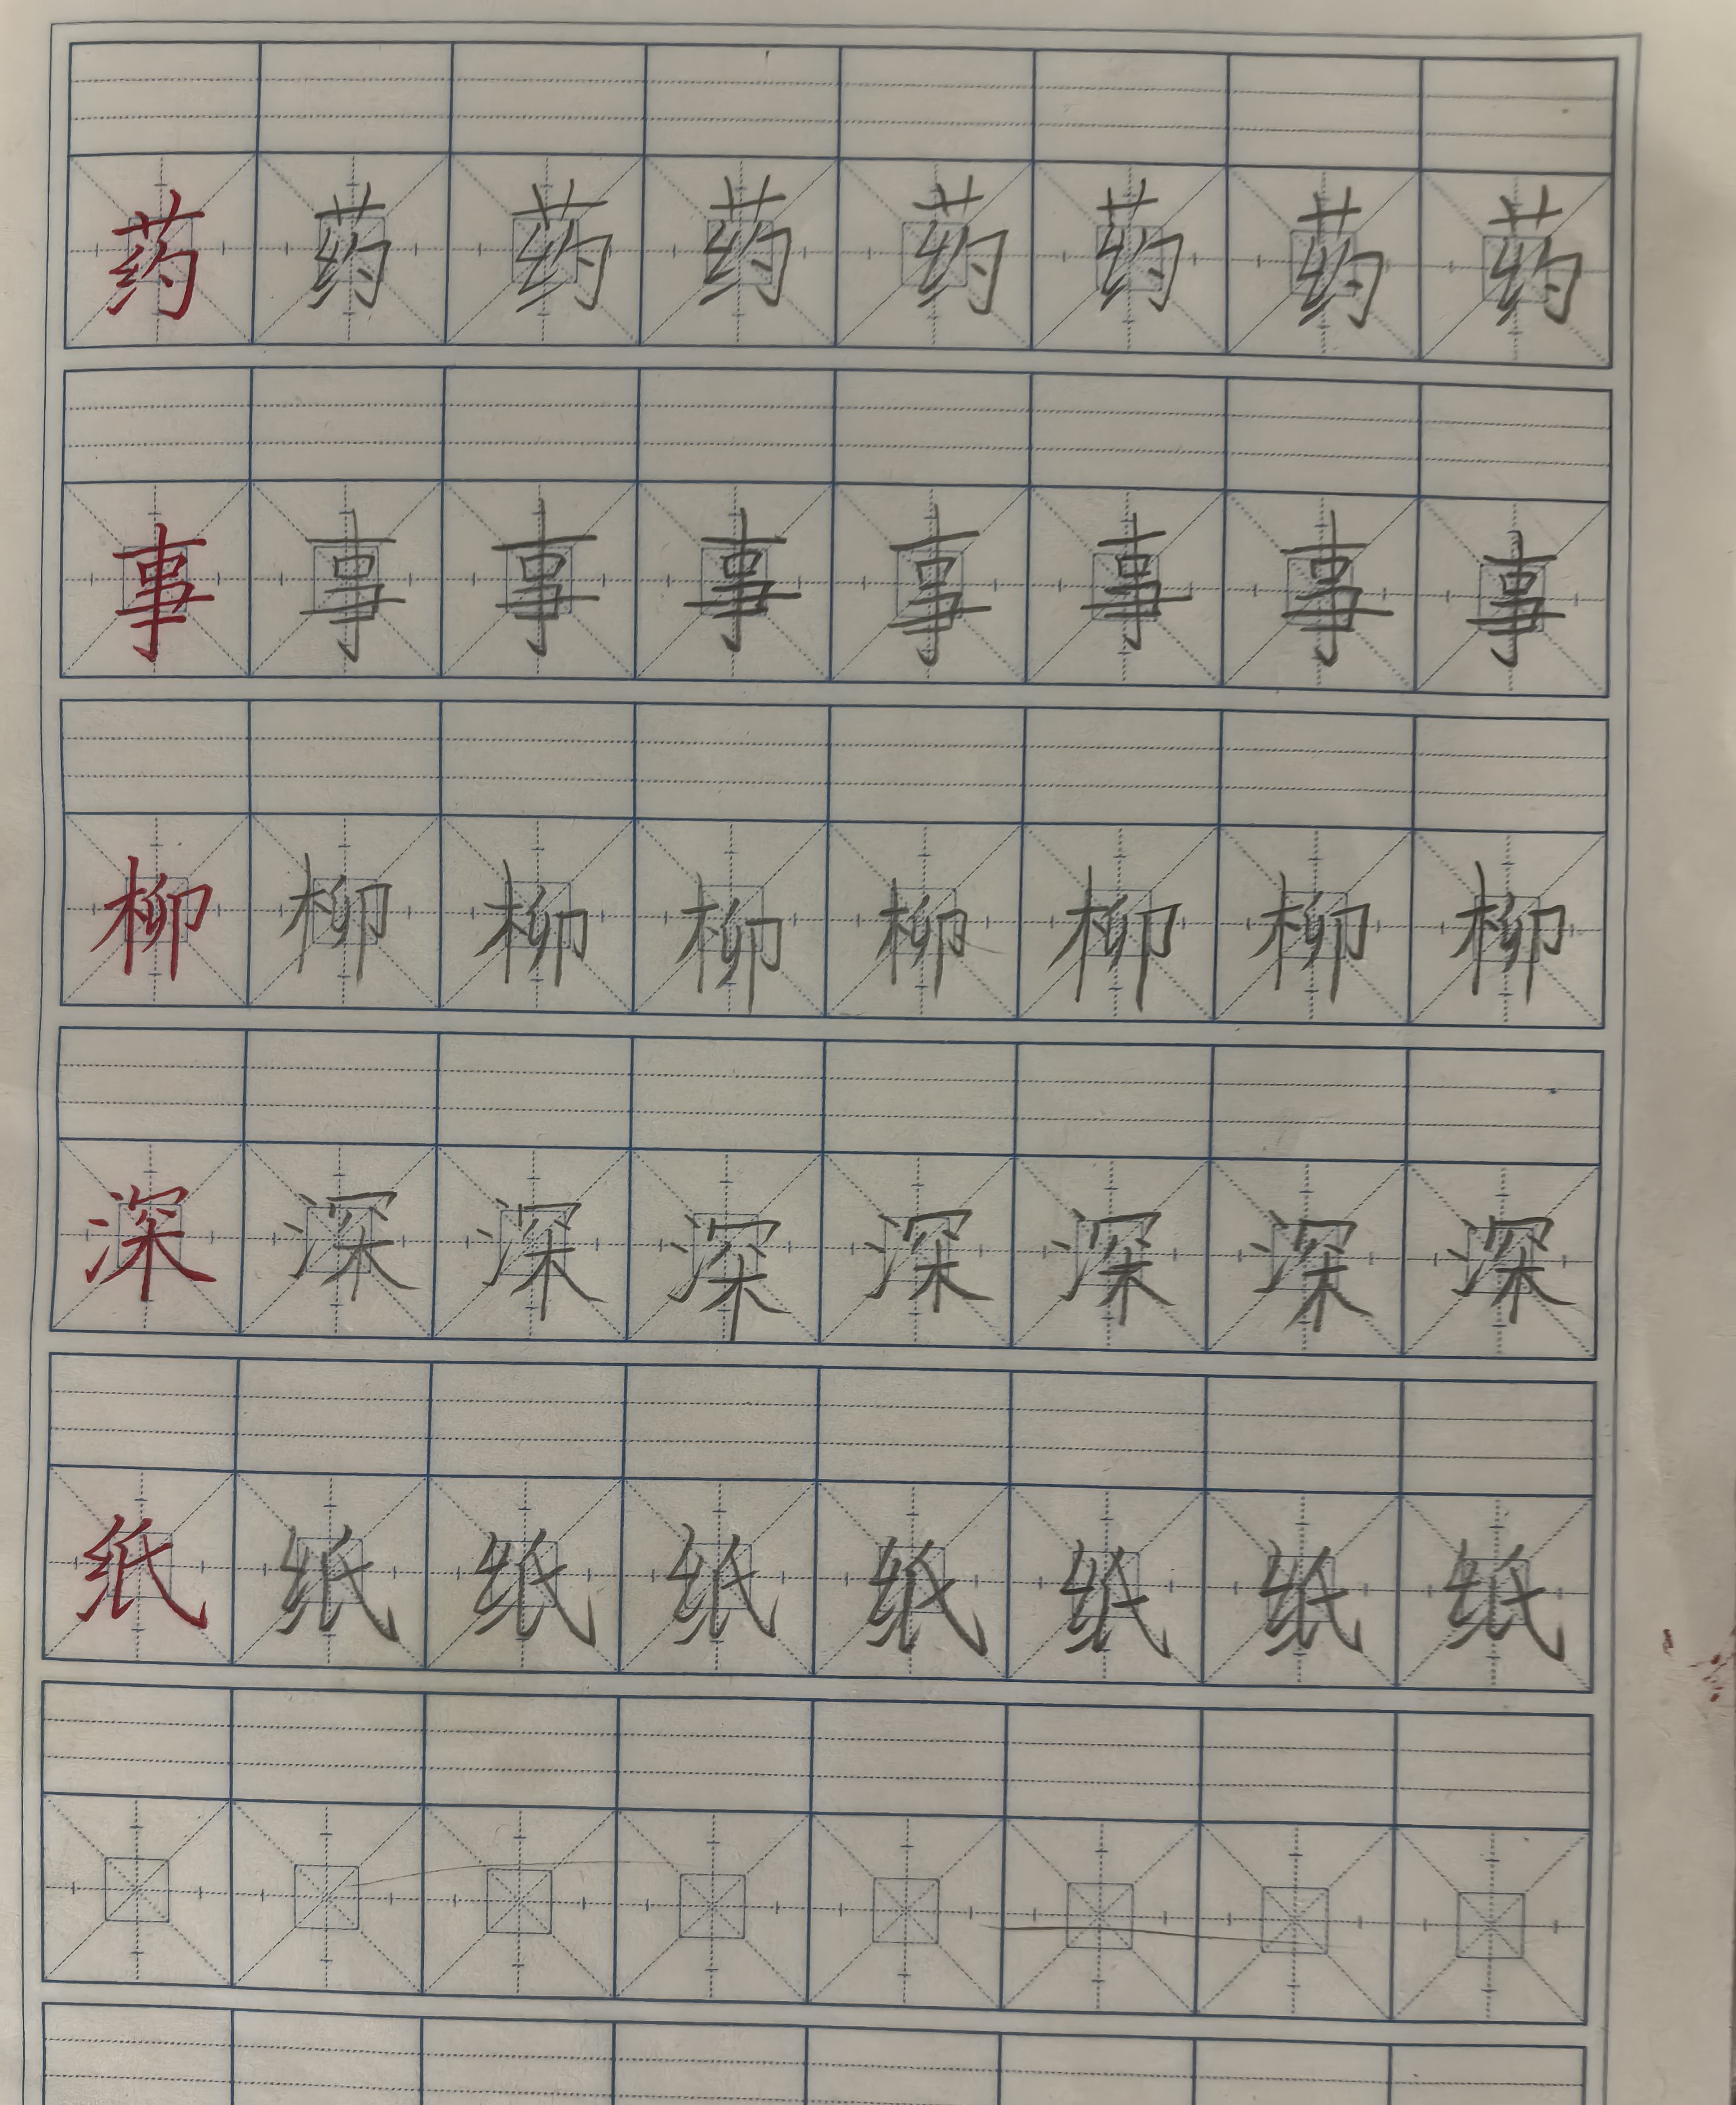 药药药药药药药药
事事事事事事事事
柳柳柳柳柳柳柳柳
深深深深深深深深
纸纸纸纸纸纸纸纸